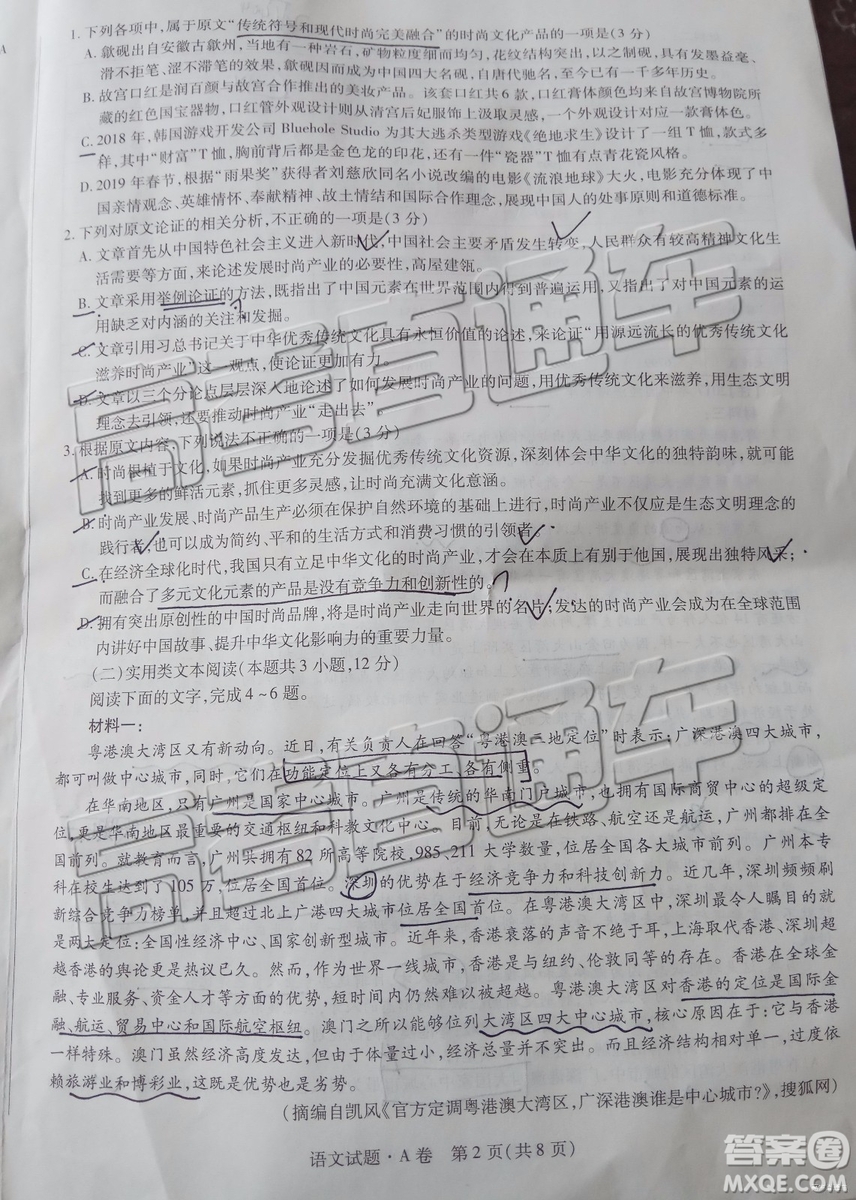 1. 下列各项中，属于原文“传统符号和现代时尚完美融合”的时尚文化产品的一项是(3 分)
A. 歙砚出自安徽古歙州，当地有一种岩石，矿物粒度细而均匀，花纹结构突出，以之制砚，具有发墨益毫、
滑不拒笔、涩不滞笔的效果，歙砚因而成为中国四大名砚，自唐代驰名，至今已有一千多年历史。
B. 故宫口红是润百颜与故宫合作推出的美妆产品。该套口红共 6 款，口红膏体颜色均来自故宫博物院所
藏的红色国宝器物，口红管外观设计则从清宫后妃服饰上汲取灵感，一个外观设计对应一款膏体色。
C. 2018 年，韩国游戏开发公司 Bluehole Studio 为其大逃杀类型游戏《绝地求生》设计了一组 T 恤，款式多
样，其中“财富”T 恤，胸前背后都是金色龙的印花，还有一件“瓷器”T 恤有点青花瓷风格。
D. 2019 年春节，根据“雨果奖”获得者刘慈欣同名小说改编的电影《流浪地球》大火，电影充分体现了中
国亲情观念、英雄情怀、奉献精神、故土情结和国际合作理念，展现中国人的处事原则和道德标准。
2. 下列对原文论证的相关分析，不正确的一项是(3 分)
A. 文章首先从中国特色社会主义进入新时代，中国社会主要矛盾发生转变，人民群众有较高精神文化生
活需要等方面，来论述发展时尚产业的必要性，高屋建瓴。
B. 文章采用举例论证的方法，既指出了中国元素在世界范围内得到普遍运用，又指出了对中国元素的运
用缺乏对内涵的关注和发掘。
C. 文章引用习总书记关于中华优秀传统文化具有永恒价值的论述，来论证“用源远流长的优秀传统文化
滋养时尚产业”这一观点，使论证更加有力。
D. 文章以三个分论点层层深入地论述了如何发展时尚产业的问题，用优秀传统文化来滋养，用生态文明
理念去引领，还要推动时尚产业“走出去”
3. 根据原文内容，下列说法不正确的一项是(3 分)
A. 时尚根植于文化，如果时尚产业充分发掘优秀传统文化资源，深刻体会中华文化的独特韵味，就可能
找到更多的鲜活元素，抓住更多灵感，让时尚充满文化意涵。
B. 时尚产业发展、时尚产品生产必须在保护自然环境的基础上进行，时尚产业不仅应是生态文明理念的
践行者，也可以成为简约、平和的生活方式和消费习惯的引领者。
C. 在经济全球化时代，我国只有立足中华文化的时尚产业，才会在本质上有别于他国，展现出独特风采；
而融合了多元文化元素的产品是没有竞争力和创新性的。
D. 拥有突出原创性的中国时尚品牌，将是时尚产业走向世界的名片；发达的时尚产业会成为在全球范围
内讲好中国故事、提升中华文化影响力的重要力量。
(二)实用类文本阅读(本题共 3 小题，12 分)
阅读下面的文字，完成 4～6 题。
材料一：
粤港澳大湾区又有新动向。近日，有关负责人在回答“粤港澳三地定位”时表示：广深港澳四大城市，
都可叫做中心城市，同时，它们在功能定位上又各有分工、各有侧重。
在华南地区，只有广州是国家中心城市。广州是传统的华南门户城市，也拥有国际商贸中心的超级定
位，更是华南地区最重要的交通枢纽和科教文化中心。目前，无论是在铁路、航空还是航运，广州都排在全
国前列。就教育而言，广州共拥有 82 所高等院校，985、211 大学数量，位居全国各大城市前列。广州本专
科在校生达到了 105 万，位居全国首位。深圳的优势在于经济竞争力和科技创新力。近几年，深圳频频刷
新综合竞争力榜单，并且超过北上广港四大城市位居全国首位。在粤港澳大湾区中，深圳最令人瞩目的就
是两大定位：全国性经济中心、国家创新型城市。近年来，香港衰落的声音不绝于耳，上海取代香港、深圳超
越香港的舆论更是热议已久。然而，作为世界一线城市，香港是与纽约、伦敦同等的存在。香港在全球金
融、专业服务、资金人才等方面的优势，短时间内仍然难以被超越。粤港澳大湾区对香港的定位是国际金
融、航运、贸易中心和国际航空枢纽。澳门之所以能够位列大湾区四大中心城市，核心原因在于：它与香港
一样特殊。澳门虽然经济高度发达，但由于体量过小，经济总量并不突出。而且经济结构相对单一，过度依
赖旅游业和博彩业，这既是优势也是劣势。
(摘编自凯风《官方定调粤港澳大湾区，广深港澳谁是中心城市？》，搜狐网)
语文试题·A 卷 第 2 页(共 8 页)
高考直通车
高考直通车
答案圈
MXQE.COM